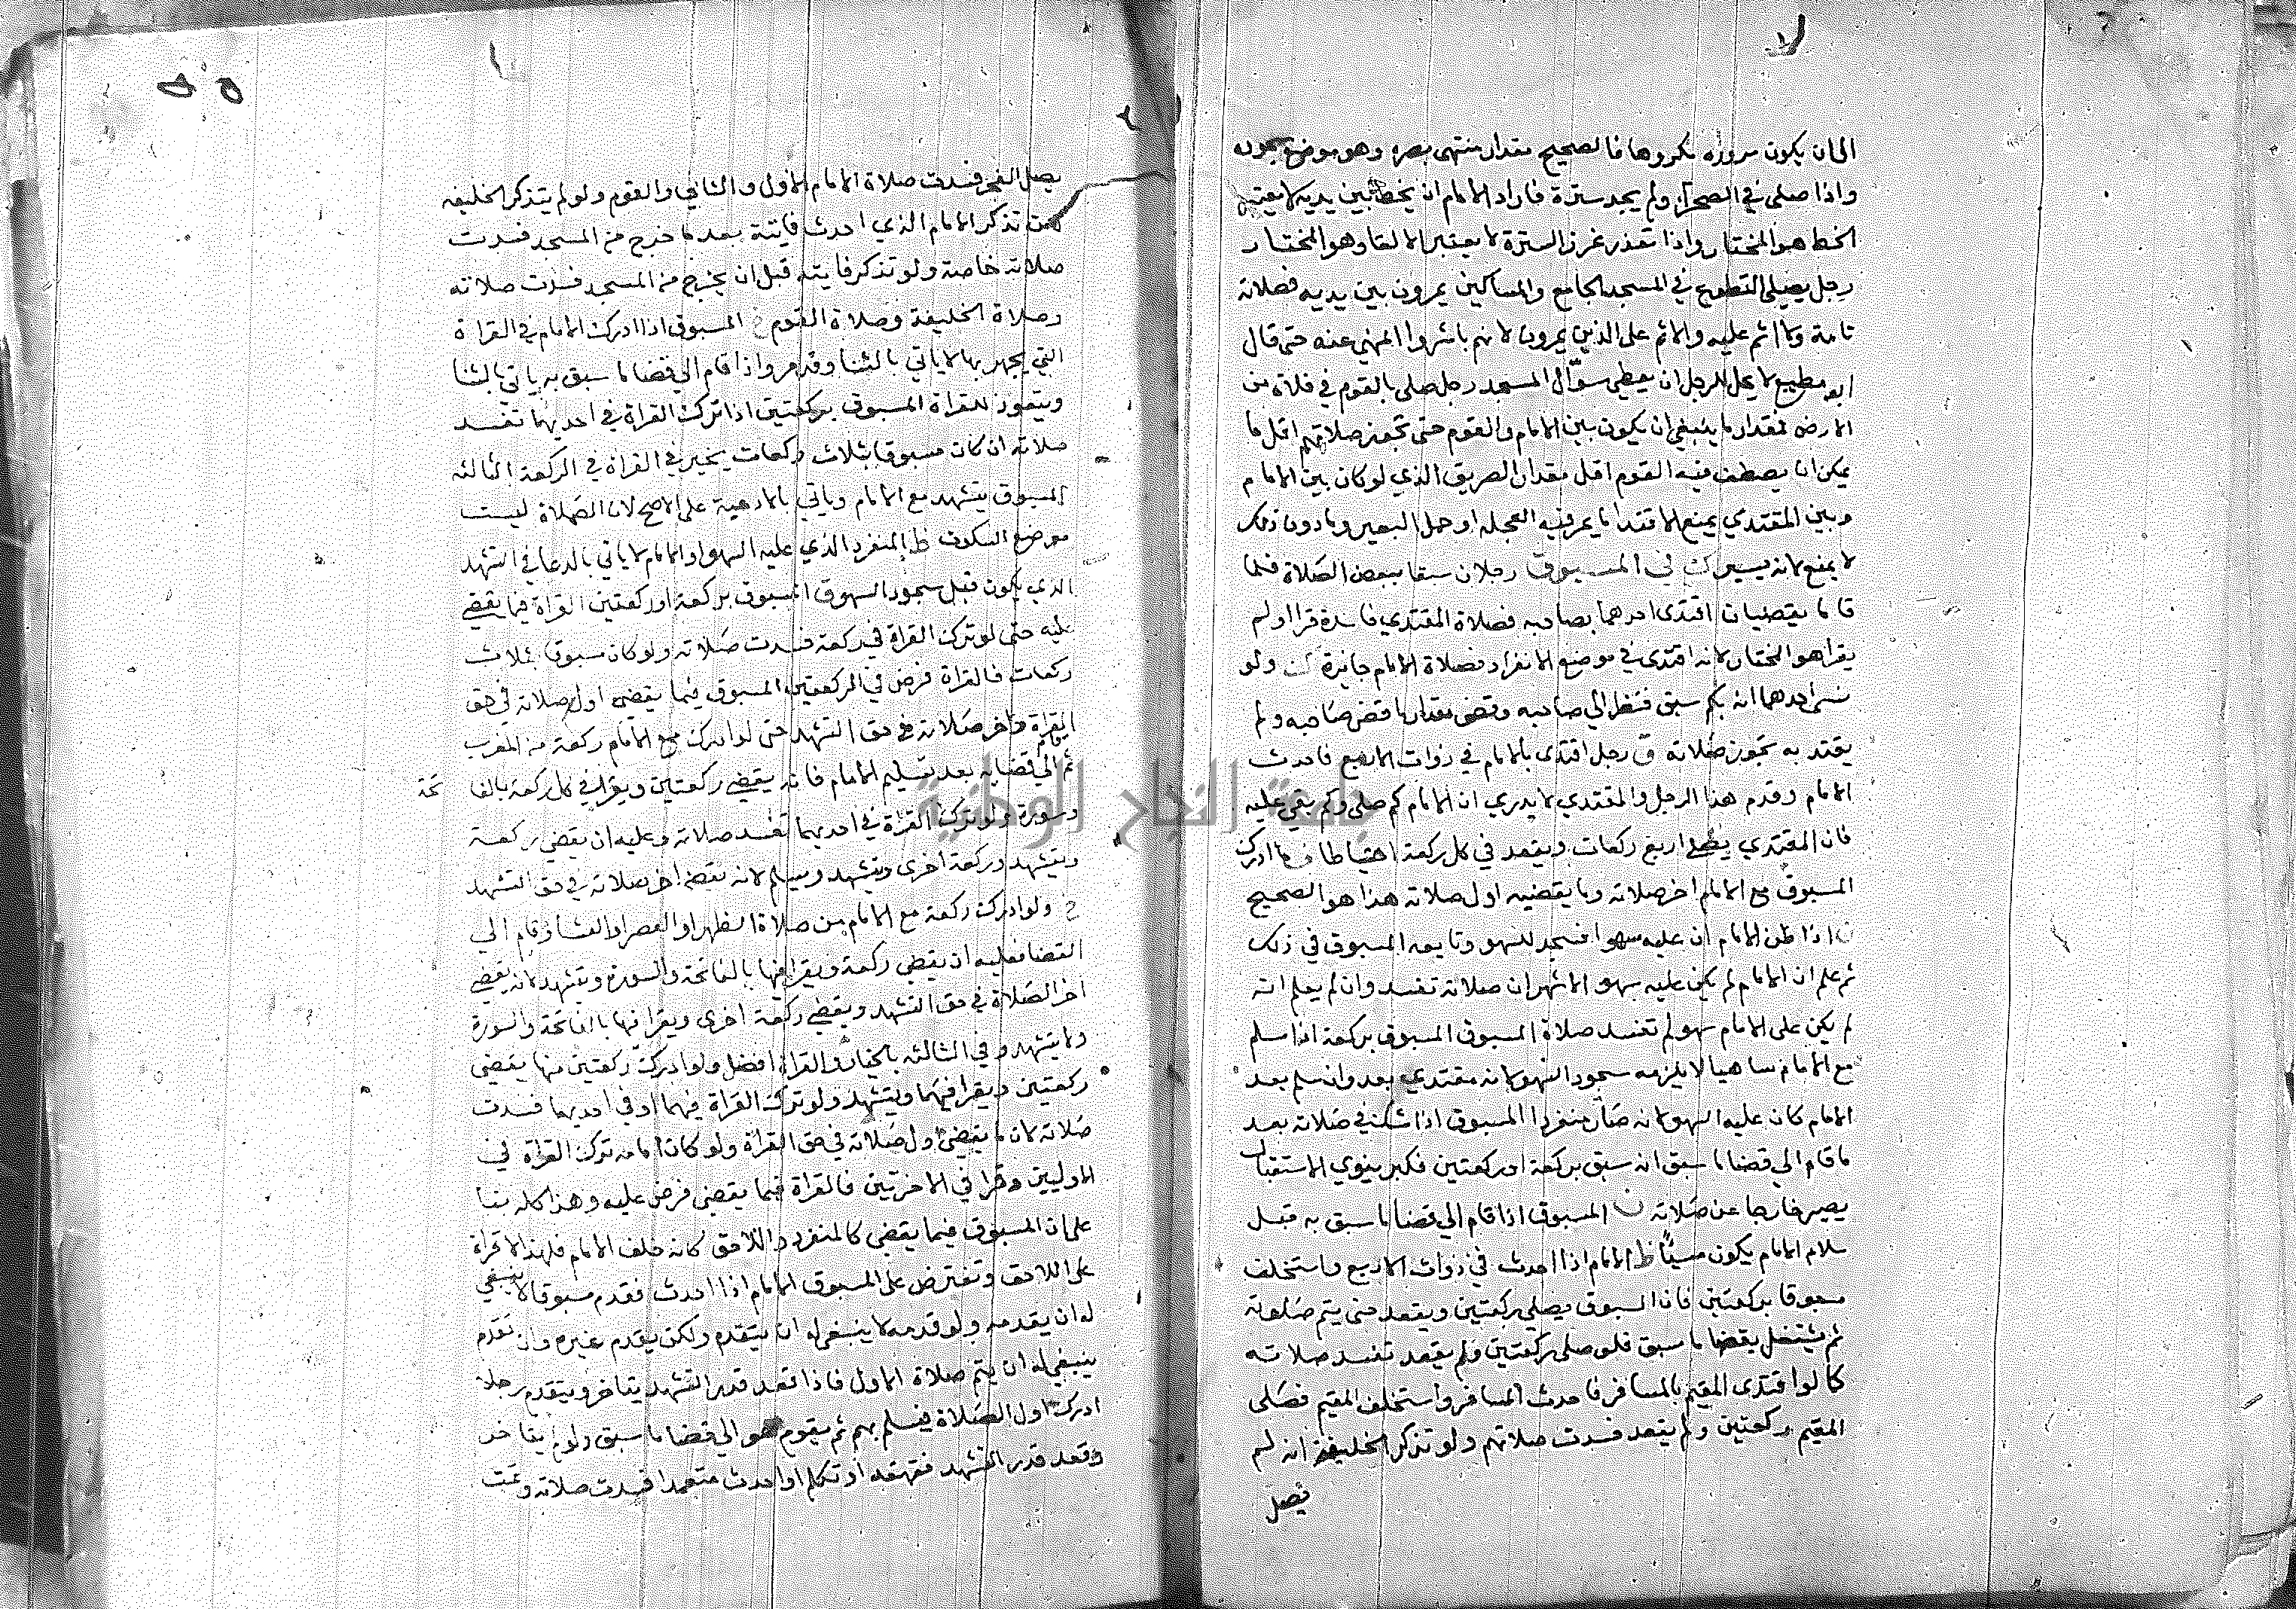 الى ان يكون مروره مكروها فالصحيح مقدار منتهى بصره وهو موضع سجوده
واذا صلى في الصحراء ولم يجد سترة فاراد الامام ان يخط بين يديه لا يعتبر
الخط هو المختار واذا تعذر غرز السترة لا يعتبر الالقا وهو المختار
رجل يصلي التطوع في المسجد الجامع والمساكين يمرون بين يديه فصلاته
تامة ولا اثم عليه والاثم على الذين يمرون لانهم باشروا المنهي عنه حتى قال
ابو مطيع لا يحل للرجل ان يعطي سوّال المسجد رجل صلى بالقوم في فلاة من
الارض فمقدار ما ينبغي ان يكون بين الامام والقوم حتى تجوز صلاتهم اقل ما
يمكن ان يصطف فيه القوم اقل مقدار الطريق الذي لو كان بين الامام
وبين المقتدي يمنع الاقتدا ما يمر فيه العجلة او حمل البعير وما دون ذلك
لا يمنع لانه يسير في المسبوق رجلان سبقا ببعض الصلاة فلما
قاما يقضيان اقتدى احدهما بصاحبه فصلاة المقتدي فاسدة قرا او لم
يقرا هو المختار لانه اقتدى في موضع الانفراد فصلاة الامام جايزة ولو
نسي احدهما انه بكم سبق فنظر الى صاحبه وقضى مقدار ما قضى صاحبه ولم
يقتد به تجوز صلاته ق رجل اقتدى بالامام في ذوات الاربع فاحدث
الامام وقدم هذا الرجل والمقتدي لا يدري ان الامام كم صلى وكم بقي عليه
فان المقتدي يصلي اربع ركعات ويقعد في كل ركعة احتياطا ما ادرك
المسبوق مع الامام اخر صلاته وما يقضيه اول صلاته هذا هو الصحيح
اذا ظن الامام ان عليه سهوا فسجد للسهو وتابعه المسبوق في ذلك
ثم علم ان الامام لم يكن عليه سهو الاشهر ان صلاته تفسد وان لم يعلم انه
لم يكن على الامام سهو لم تفسد صلاة المسبوق المسبوق بركعة اذا سلم
مع الامام ساهيا لا يلزمه سجود السهو لانه مقتدي بعد وان سلم بعد
الامام كان عليه السهو لانه صار منفردا المسبوق اذا شك في صلاته بعد
ما قام الى قضا ما سبق انه سبق بركعة او ركعتين فكبر ينوي الاستقبال
يصير خارجا عن صلاته المسبوق اذا قام الى قضا ما سبق به قبل
سلام الامام يكون مسيئا ظ الامام اذا احدث في ذوات الاربع واستخلف
مسبوقا بركعتين فان المسبوق يصلي ركعتين ويقعد حتى يتم صلوته
ثم يشتغل بقضا ما سبق فلو صلى ركعتين ولم يقعد تفسد صلاته
كما لو اقتدى المقيم بالمسافر فاحدث المسافر واستخلف المقيم فصلى
المقيم ركعتين ولم يقعد فسدت صلاتهم ولو تذكر الخليفة انه لم
يصل
يصل الفجر فسدت صلاة الامام الاول والثاني والقوم ولو لم يتذكر الخليفه
تذكر الامام الذي احدث فايتة بعد ما خرج من المسجد فسدت
صلاته خاصة ولو تذكر فايته قبل ان يخرج من المسجد فسدت صلاته
وصلاة الخليفة وصلاة القوم خ المسبوق اذا ادرك الامام في القراة
التي يجهر بها لا ياتي بالثنا وقد مر واذا قام الى قضا ما سبق به ياتي بالثنا
ويتعوذ للقراة المسبوق بركعتين اذا ترك القراة في احديهما تفسد
صلاته ان كان مسبوقا بثلاث ركعات يخير في القراة في الركعة الثالثه
المسبوق يتشهد مع الامام وياتي بالادعية على الاصح لان الصلاة ليست
موضع السكوت ظ المنفرد الذي عليه السهو او الامام لا ياتي بالدعا في التشهد
الذي يكون قبل سجود السهو ق المسبوق بركعة او ركعتين القراة فيما يقضي
عليه حتى لو ترك القراة في ركعة فسدت صلاته ولو كان مسبوقا بثلاث
ركعات فالقراة فرض في الركعتين المسبوق فيما يقضي اول صلاته في حق
القراة واخر صلاته في حق التشهد حتى لو ادرك مع الامام ركعة من المغرب
ثم قام الى قضايه بعد تسليم الامام فانه يقضي ركعتين ويقرا في كل ركعة بالفا تحة
وسورة ولو ترك القراة في احديهما تفسد صلاته وعليه ان يقضي ركعة
ويتشهد وركعة اخرى ويتشهد ويسلم لانه يقضي اخر صلاته في حق التشهد
خ ولو ادرك ركعة مع الامام من صلاة الظهر او العصر او العشا وقام الى
القضا فعليه ان يقضي ركعة ويقرا فيها بالفاتحة والسورة ويتشهد لانه يقضي
اخر الصلاة في حق التشهد ويقضي ركعة اخرى ويقرا فيها بالفاتحة والسورة
ولا يتشهد وفي الثالثه بالخيار والقراة افضل ولو ادرك ركعتين منها يقضي
ركعتين ويقرا فيهما ويتشهد ولو ترك القراة فيهما او في احديهما فسدت
صلاته لان ما يقضي اول صلاته في حق القراة ولو كان امامه ترك القراة في
الاوليين وقرا في الاخرتين فالقراة فيما يقضي فرض عليه وهذا كله بنا
على ان المسبوق فيما يقضي كالمنفرد واللاحق كانه خلف الامام فلهذا لا قراة
على اللاحق وتفترض على المسبوق الامام اذا احدث فقدم مسبوقا لا ينبغي
له ان يقدمه ولو قدمه لا ينبغي له ان يتقدم ولكن يقدم غيره وان تقدم
ينبغي له ان يتم صلاة الاول فاذا قعد قدر التشهد يتاخر ويتقدم رجلا
ادرك اول الصلاة فيسلم بهم ثم يقوم هو الى قضا ما سبق ولو لم يتاخر
وقعد قدر التشهد فقهقه او تكلم او احدث متعمدا فسدت صلاته وتمت
جامعة النجاح الوطنية